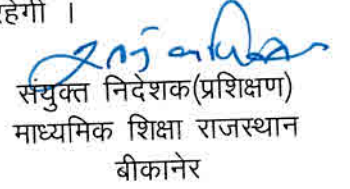 रहेगी ।
संयुक्त निदेशक(प्रशिक्षण)
माध्यमिक शिक्षा राजस्थान
बीकानेर